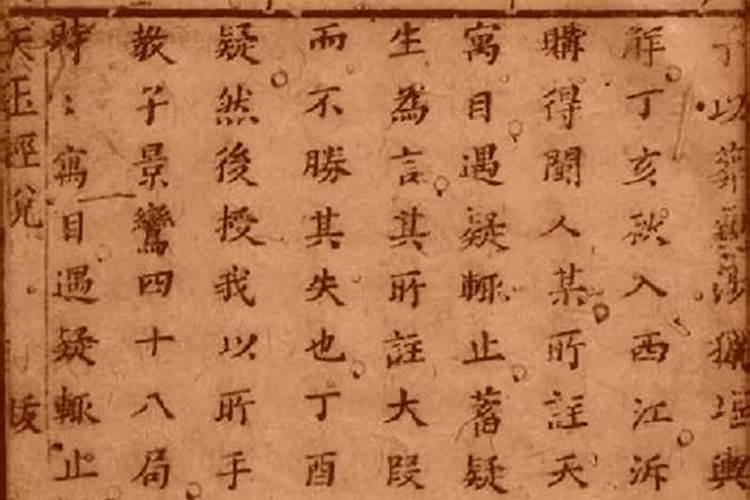 于以葬親涉獵堪輿
解丁亥秋入西江泝
購得閩人某所註天
寓目遇疑輒止蓄疑
生為言其所註大段
而不勝其失也丁酉
疑然後授我以所手
教子景鸞四十八局
時〻寓目遇疑輒止
天玉經 跋